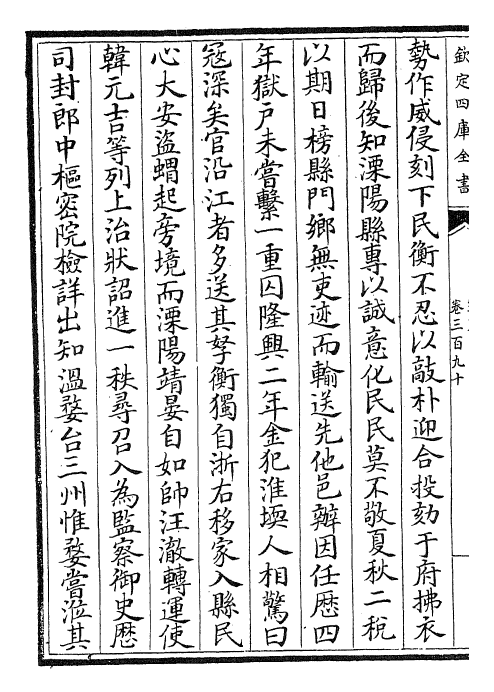 欽定四庫全書
卷三百九十
勢作威侵刻下民衡不忍以敲朴迎合投劾于府拂衣
而歸後知溧陽縣專以誠意化民民莫不敬夏秋二稅
以期日榜縣門鄉無吏迹而輸送先他邑辦因任歷四
年獄户未嘗繫一重囚隆興二年金犯淮壖人相驚曰
寇深矣官沿江者多送其孥衡獨自浙右移家入縣民
心大安盜蝟起旁境而溧陽靖晏自如帥汪澈轉運使
韓元吉等列上治狀詔進一秩尋召入為監察御史歷
司封郎中樞密院檢詳出知溫婺台三州惟婺嘗涖其